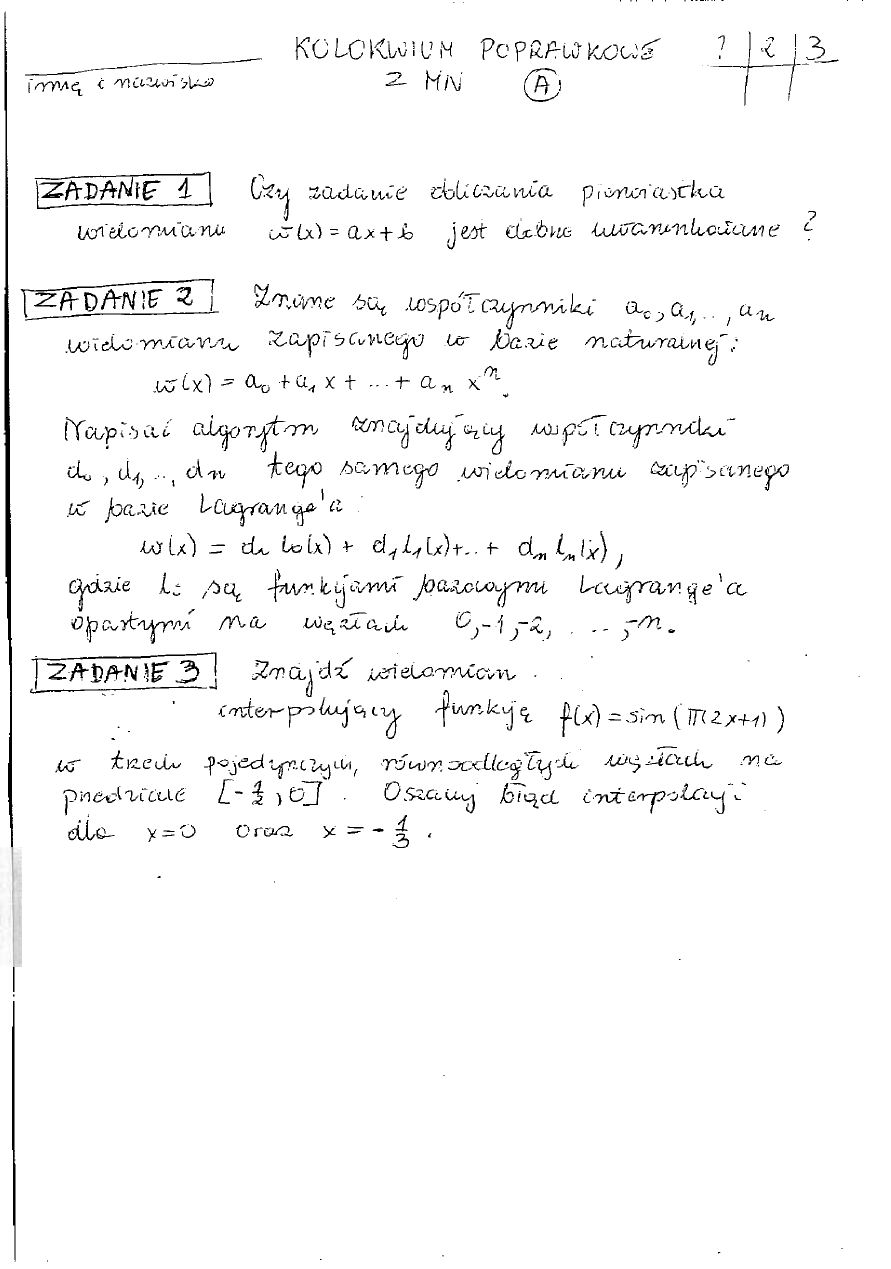 KOLOKWIUM POPRAWKOWE 1 | 2 | 3
imię i nazwisko Z MN (A)
ZADANIE 1 Czy zadanie obliczania pierwiastka
wielomianu w(x) = ax + b jest dobrze uwarunkowane ?
ZADANIE 2 Znane są współczynniki a₀, a₁, .., aₙ
wielomianu zapisanego w bazie naturalnej:
w(x) = a₀ + a₁ x + ... + aₙ xⁿ.
Napisać algorytm znajdujący współczynniki
d₀, d₁, .., dₙ tego samego wielomianu zapisanego
w bazie Lagrange'a :
w(x) = d₀ l₀(x) + d₁ l₁(x) + .. + dₙ lₙ(x),
gdzie lᵢ są funkcjami bazowymi Lagrange'a
opartymi na węzłach 0, -1, -2, ..., -n.
ZADANIE 3 Znajdź wielomian
interpolujący funkcję f(x) = sin (π(2x+1))
w trzech pojedynczych, równoodległych węzłach na
przedziale [-1/2, 0]. Oszacuj błąd interpolacji
dla x = 0 oraz x = -1/3.